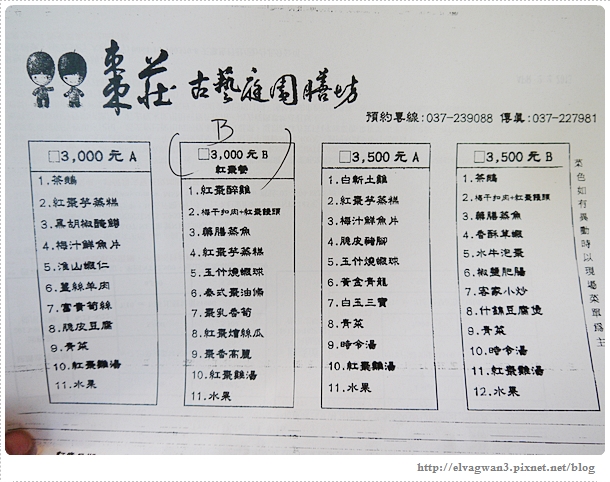 棗莊 古藝庭園膳坊
預約專線:037-239088 傳真:037-227981
B
□3,000 元 A
1.茶鵝
2.紅棗芋蒸糕
3.黑胡椒醃腸
4.梅汁鮮魚片
5.淮山蝦仁
6.薑絲羊肉
7.富貴筍絲
8.脆皮豆腐
9.青菜
10.紅棗雞湯
11.水果
□3,000 元 B
紅棗餐
1.紅棗醉雞
2.梅干扣肉+紅棗饅頭
3.藥膳蒸魚
4.紅棗芋蒸糕
5.五竹燒蝦球
6.泰式棗油條
7.棗乳香萄
8.紅棗燴絲瓜
9.棗香高麗
10.紅棗雞湯
11.水果
□3,500 元 A
1.白斬土雞
2.紅棗芋蒸糕
3.梅汁鮮魚片
4.脆皮豬腳
5.五竹燒蝦球
6.黃金青龍
7.白玉三寶
8.青菜
9.時令湯
10.紅棗雞湯
11.水果
□3,500 元 B
1.茶鵝
2.梅干扣肉+紅棗饅頭
3.藥膳蒸魚
4.香酥草蝦
5.水牛泡棗
6.椒鹽肥腸
7.客家小炒
8.什錦豆腐煲
9.青菜
10.時令湯
11.紅棗雞湯
12.水果
菜色如有異動時以現場菜單為主
http://elvagwan3.pixnet.net/blog